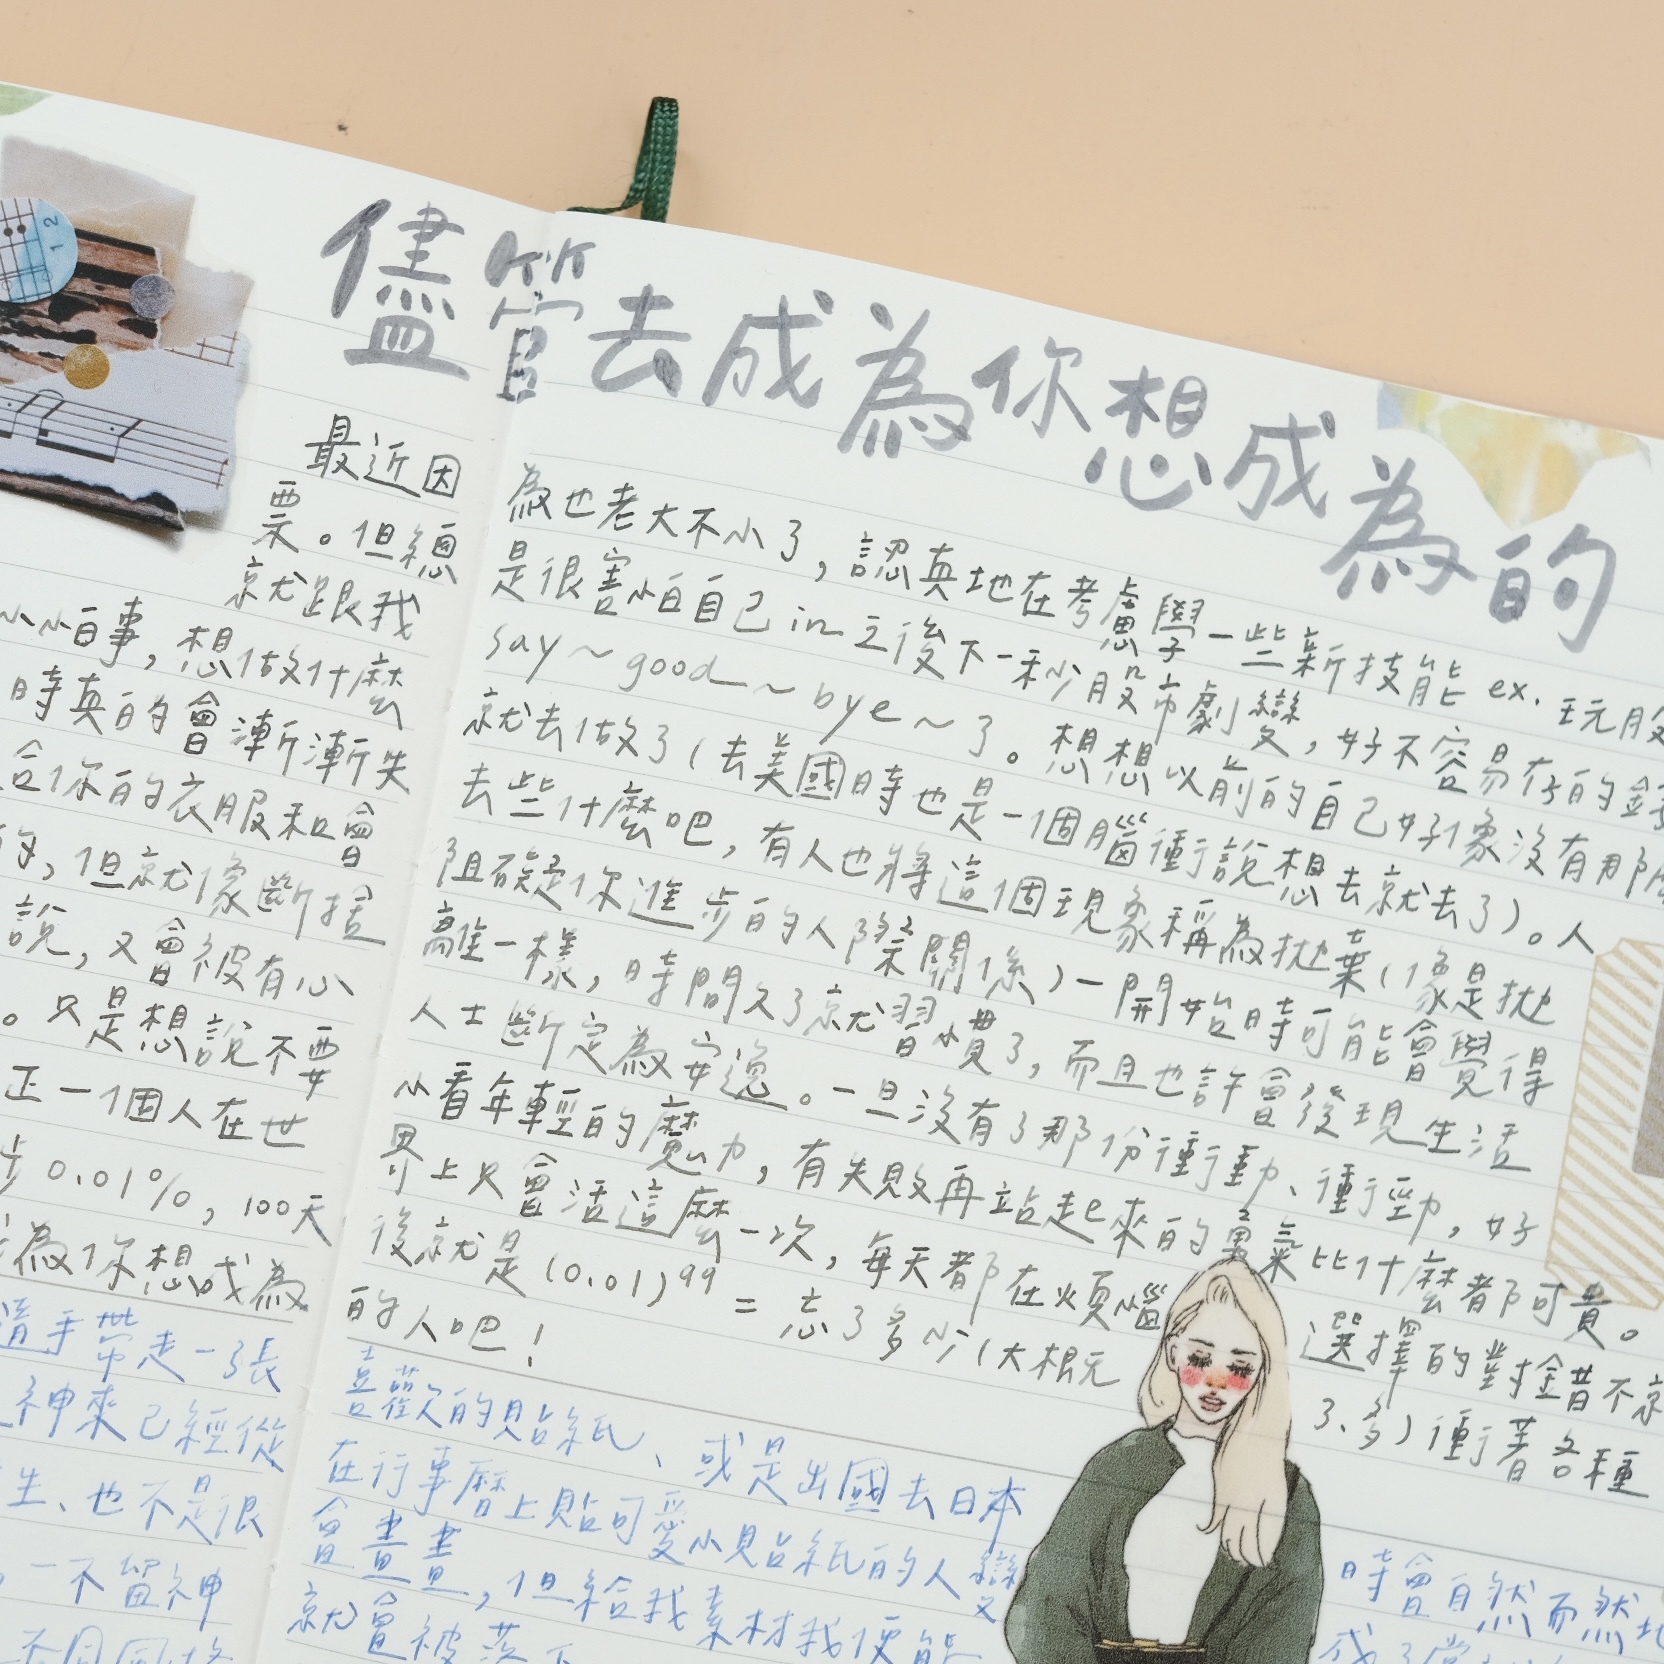 儘管去成為你想成為的
最近因
票。但總
就跟我
小小的事,想做什麼
時真的會漸漸失
合你的衣服和會
的,但就像斷捨
說,又會被有心
。只是想說不要
正一個人在世
步0.01%,100天
為你想成為
隨手帶走一張
神來已經從
生、也不是很
一不留神
為也老大不小了,認真地在考慮學一些新技能 ex. 玩股
是很害怕自己in之後下一秒股市劇變,好不容易存的錢
say~good~bye~了。想想以前的自己好像沒有那麼
就去做了(去美國時也是一個腦衝說想去就去了)。人
去些什麼吧,有人也將這個現象稱為拋棄(像是拋
阻礙你進步的人際關係)一開始時可能會覺得
離一樣,時間久了就習慣了,而且也許會發現生活
人士斷定為安逸。一旦沒有了那份衝動、衝勁,好
小看年輕的魔力,有失敗再站起來的勇氣比什麼都可貴。
界上只會活這麼一次,每天都在煩惱選擇的對錯不就
後就是(0.01)⁹⁹=忘了多少(大概元了、多)衝著各種
的人吧!
喜歡的貼紙、或是出國去日本
在行事曆上貼可愛小貼紙的人變
會畫畫,但給我素材我便能
就會被落下
時會自然而然地
成了